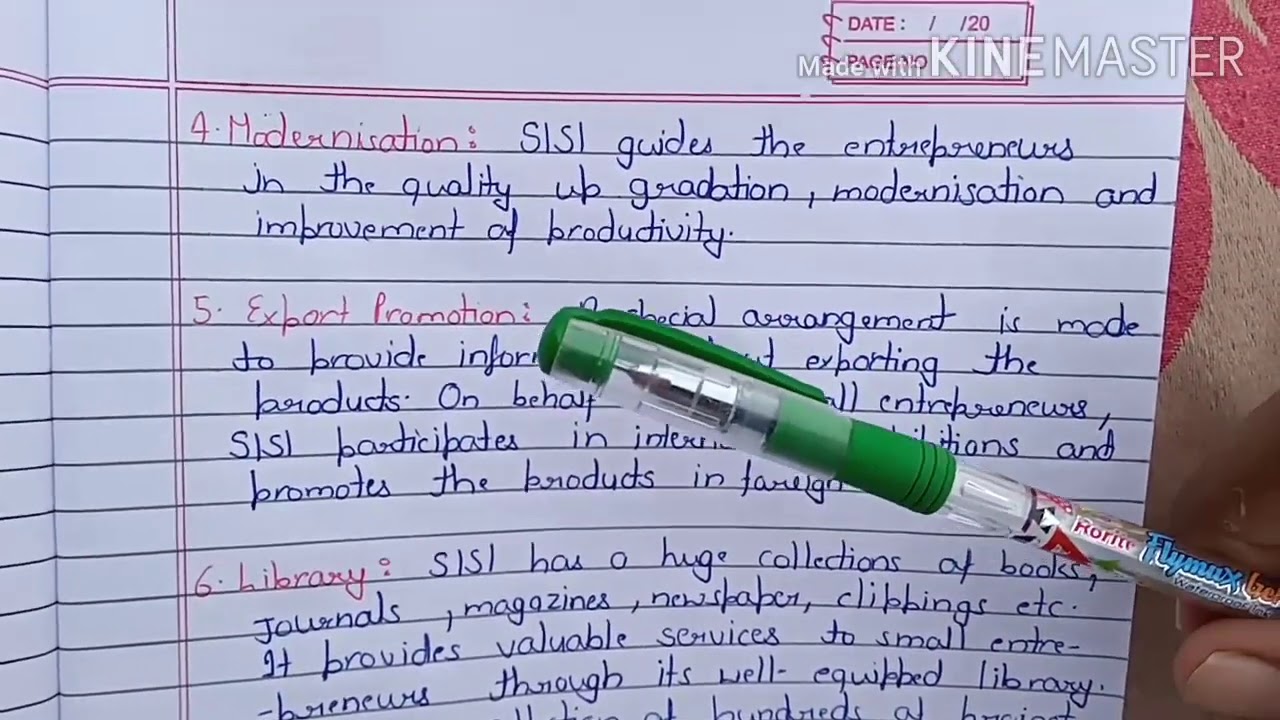 DATE: / /20
PAGE NO
Made with KINEMASTER
4. Modernisation: SISI guides the entrepreneurs
in the quality up gradation, modernisation and
improvement of productivity.
5. Export Promotion: special arrangement is made
to provide exporting the
products. On behalf entrepreneurs,
SISI participates in and
promotes the products in foreign
6. Library: SISI has a huge collections of books,
Journals, magazines, newspaper, clippings etc.
It provides valuable services to small entre-
-preneurs through its well-equipped library.
of hundreds of
Rorito
Flymax